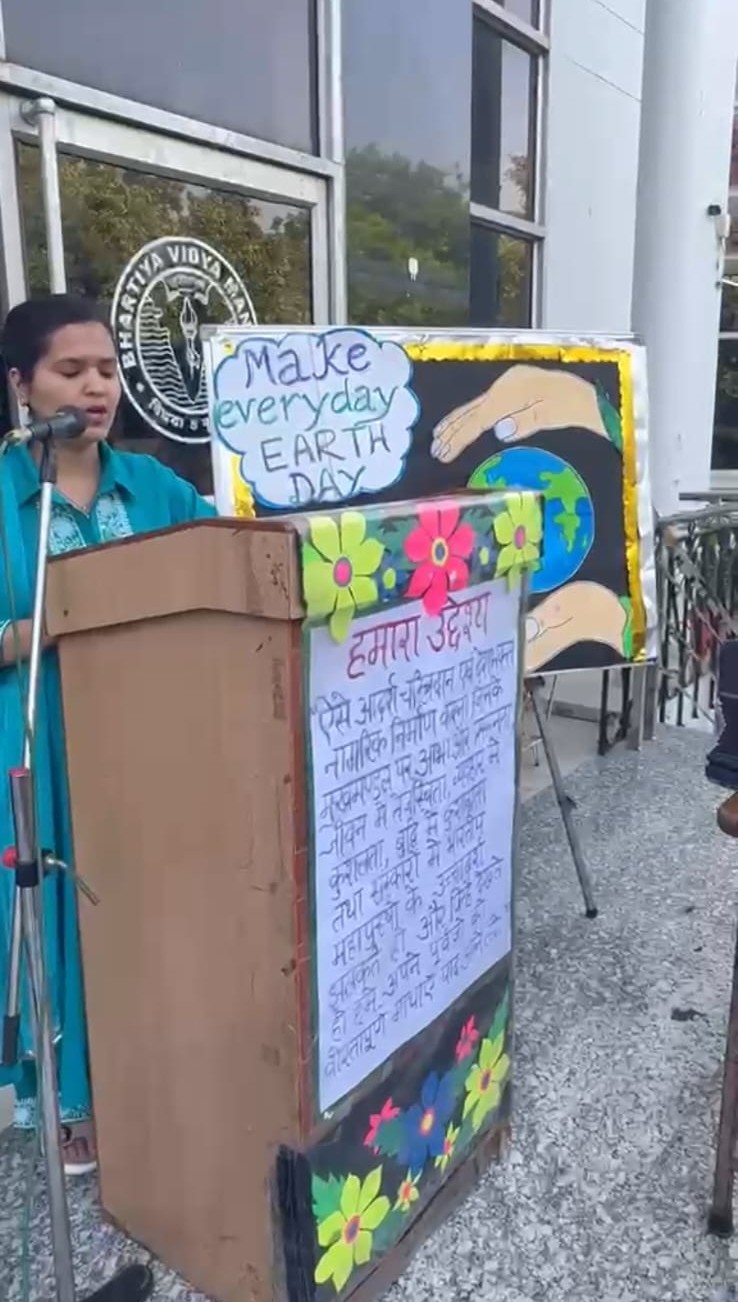 BHARTIYA VIDYA MAN
Make
everyday
EARTH
DAY
हमारा उद्देश्य
"ऐसे आदर्श चरित्रवान एवं देशभक्त
नागरिक निर्माण करना जिनके
मुखमण्डल पर आभा और
जीवन में तेजस्विता, व्यवहार में
कुशलता, बुद्धि में कुशाग्रता
तथा संस्कारों में भारतीय
महापुरुषों के
झलकते हो और जिन्हें देखते
ही हमें अपने पूर्वजों की
वीरतापूर्ण गाथाएं याद आने लगे